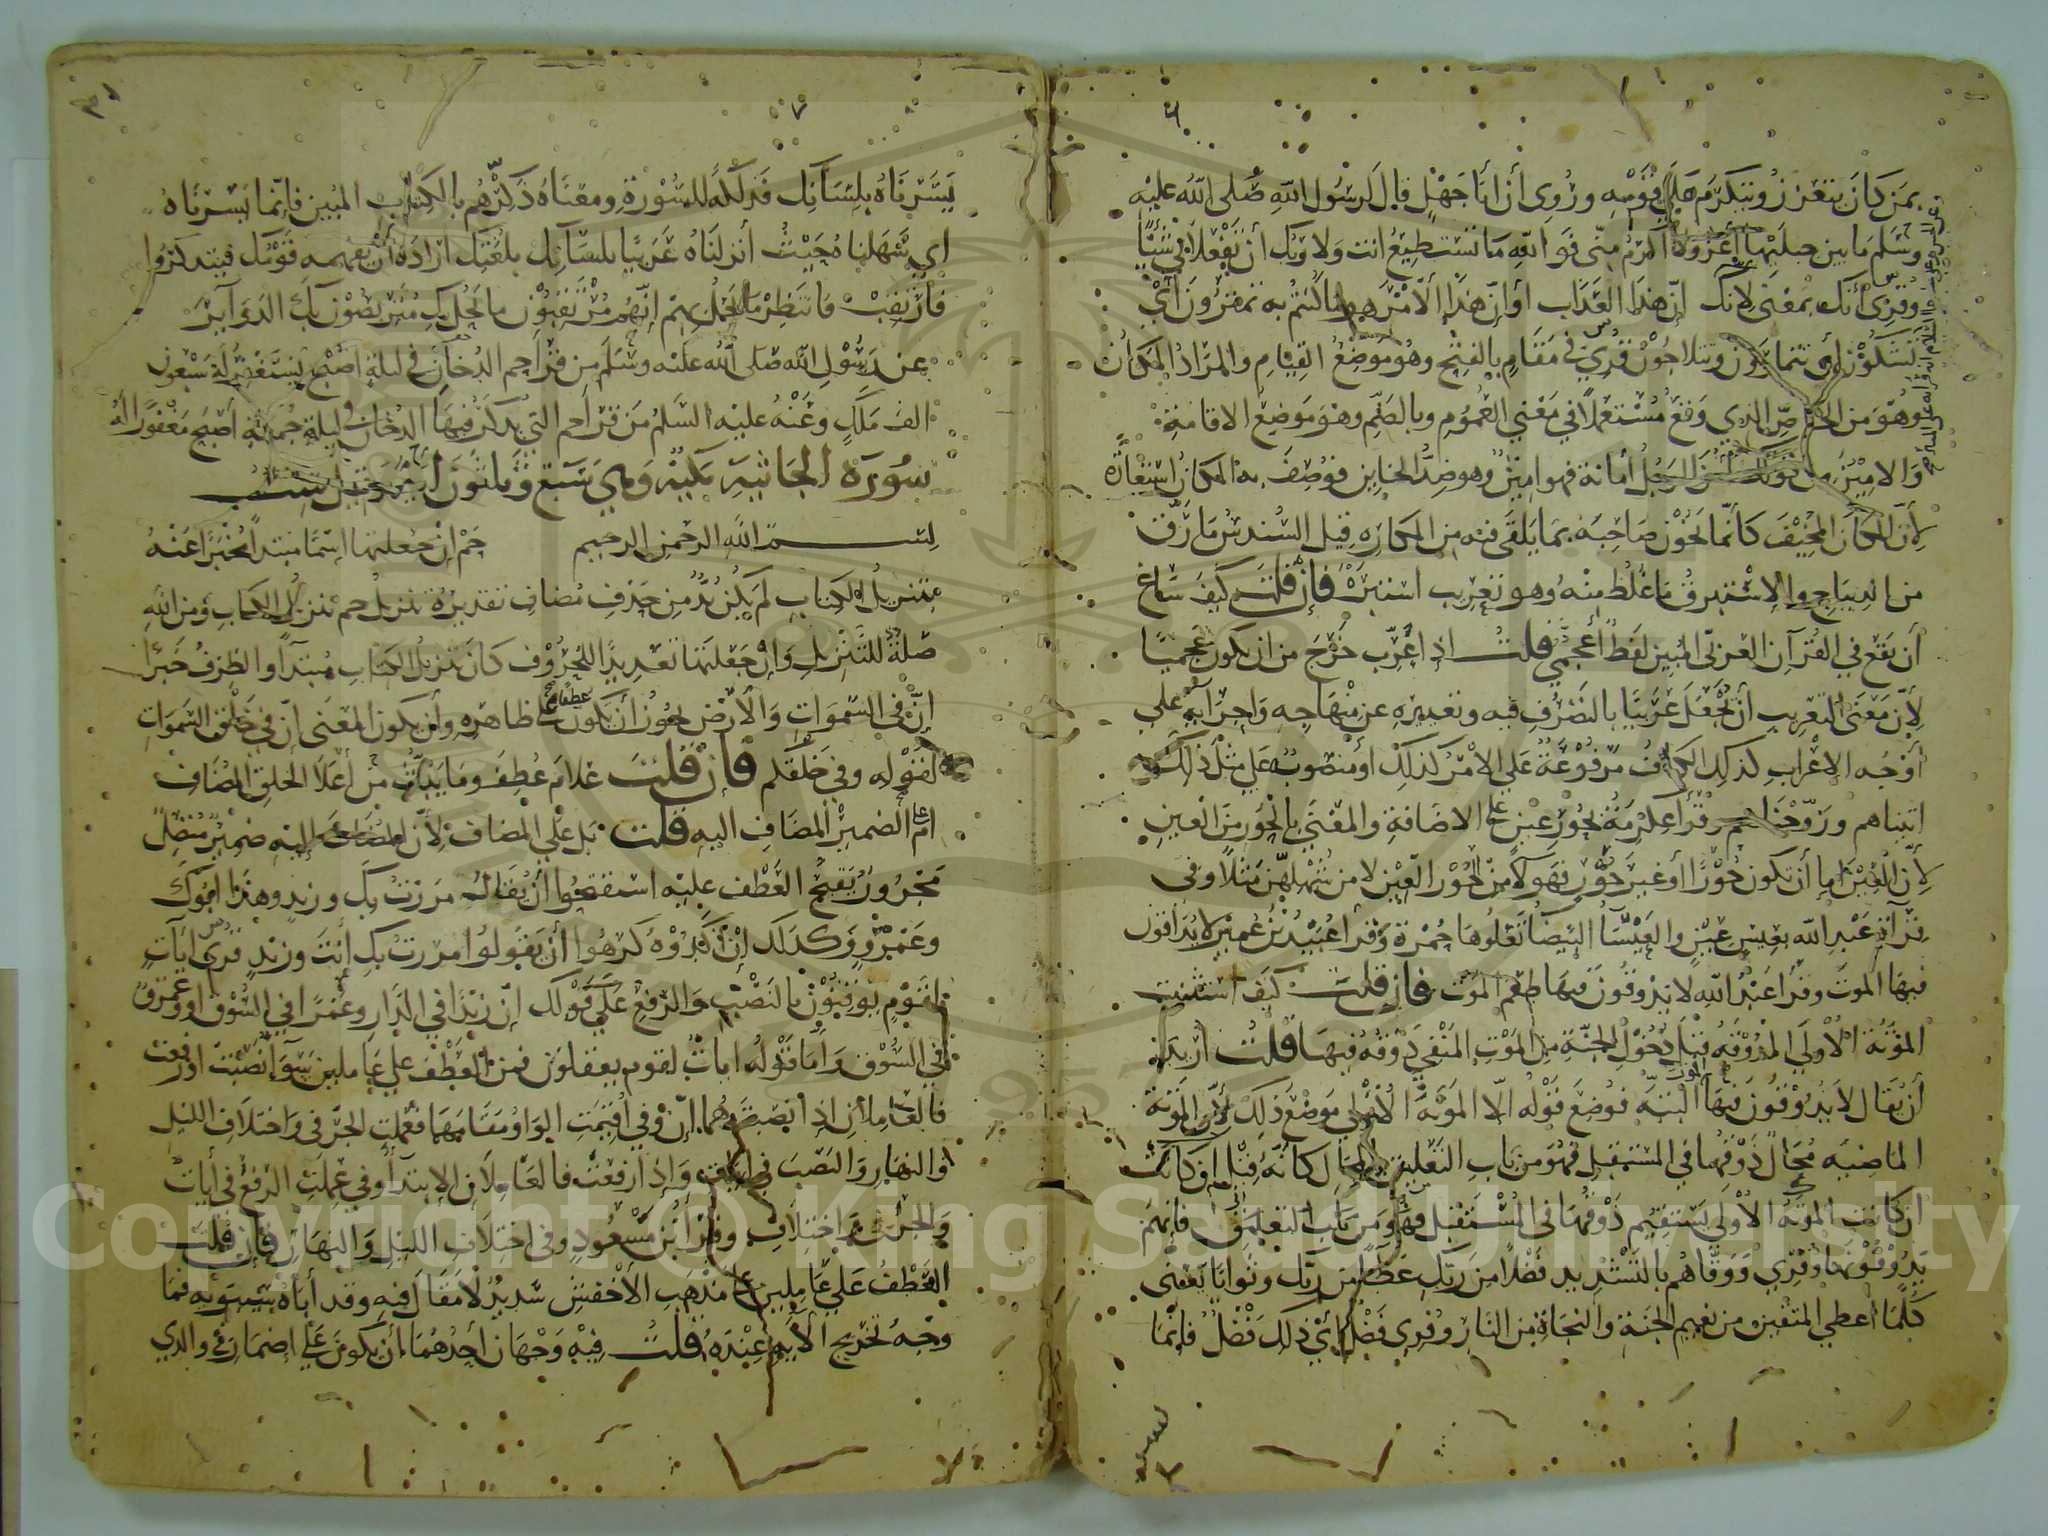 بمن كان يتعزز ويتكرم على قومه وروي أن أبا جهل قال لرسول الله صلى الله عليه
وسلم ما بين جبليها أعز ولا أكرم مني فو الله ما تستطيع انت ولا ربك أن يفعلا في شيئا
وقري أنك بمعنى لانك إن هذا العذاب أو إن هذا الأمر هو ما كنتم به تمترون أي
تشكون أو تتمارون وتتلاجون قري في مقام بالفتح وهو موضع القيام والمراد المكان
وهو من الخاص الذي وقع مستعملا في معنى العموم وبالضم وهو موضع الاقامة
والامين من قولك أمن الرجل أمانة فهو امين وهو ضد الخاين فوصف به المكان استعارة
لأن المكان المخيف كأنما يخون صاحبه بما يلقى فيه من المكاره قيل السندس ما رق
من الديباج والاستبرق ما غلظ منه وهو تعريب استبر فإن قلت كيف ساغ
أن يقع في القرآن العربي المبين لفظ أعجمي قلت اذا عرب خرج من ان يكون عجميا
لأن معنى التعريب أن يجعل عربيا بالتصرف فيه وتغييره عن منهاجه واجرائه على
أوجه الاعراب كذلك الكاف مرفوعة على الامر كذلك أو منصوبة على مثل ذلك
اتيناهم وزوجناهم وقرأ عكرمة بحور عين على الاضافة والمعنى بالحور من العين
لأن العين اما أن تكون حورا أو غير حور فهو لا من الحور العين لا من شهلهن مثلا وفي
قرآة عبد الله بعيس عين والعيسا البيضا تعلوها حمرة وقرأ عبيد بن عمير لا يذاقون
فيها الموت وقرأ عبد الله لا يذوقون فيها طعم الموت فان قلت كيف استثنيت
الموتة الأولى المذوقة قبل دخول الجنة من الموت المنفي ذوقه فيها قلت اريد
أن يقال لا يذوقون فيها الموت البتة فوضع قوله الا الموتة الأولى موضع ذلك لأن الموتة
الماضية محال ذوقها في المستقبل فهو من باب التعليق بالمحال كأنه قيل ان كانت
ان كانت الموتة الأولى يستقيم ذوقها في المستقبل فهو من باب التعليق فانهم
يذوقونها وقري ووقاهم بالتشديد فضلا من ربك عطا من ربك وثوابا يعني
كلما أعطي المتقين من نعيم الجنة والنجاة من النار وقري فضل أي ذلك فضل فإنما
يسرناه بلسانك فذلكة للسورة ومعناه ذكرهم بالكتاب المبين فإنما يسرناه
اي سهلناه حيث أنزلناه عربيا بلسانك بلغتك ارادة أن يفهمه قومك فيتذكروا
فارتقب فانتظر ما يحل بهم إنهم مرتقبون ما يحل بك متربصون بك الدوآير
عن رسول الله صلى الله عليه وسلم من قرأ حم الدخان في ليلة اصبح يستغفر له سبعون
الف ملك وعنه عليه السلم من قرأ حم التي يذكر فيها الدخان في ليلة جمعة أصبح مغفورا له
سورة الجاثية مكية وهي سبع وثلثون آية
بسم الله الرحمن الرحيم حم إن جعلتها اسما مبتدأ مخبرا عنه
بتنزيل الكتاب لم يكن بد من حذف مضاف تقديره تنزيل حم تنزيل الكتاب ومن الله
صلة للتنزيل وإن جعلتها تعديدا للحروف كان تنزيل الكتاب مبتدأ والظرف خبرا
إن في السموات والأرض يجوز أن يكون على ظاهره وأن يكون المعنى إن في خلق السموات
لقوله وفي خلقكم فان قلت علام عطف وما يبث من أعلى الخلق المضاف
ام على الضمير المضاف اليه قلت بل على المضاف لأن المضاف إليه ضمير متصل
مجرور يقبح العطف عليه استقبحوا أن يقال مررت بك وزيد وهذا ابوك
وعمرو وكذلك إن أكدوه كرهوا أن يقولوا مررت بك أنت وزيد قرى آيات
لقوم يوقنون بالنصب والرفع على قولك إن زيدا في الدار وعمرا في السوق او وعمرو
في السوق وأما قوله ايات لقوم يعقلون فمن العطف على عاملين سوآ نصبت او رفعت
فالعاملان إذا نصبت هما إن وفي أقيمت الواو مقامهما فعملت الجر في واختلاف الليل
والنهار والنصب في ايات وإذا رفعت فالعاملان الابتدآ وفي عملت الرفع في أيات
والجر في واختلاف وقرأ ابن مسعود وفي اختلاف الليل والنهار فإن قلت
العطف على عاملين على مذهب الأخفش سديد لا مقال فيه وقد أباه سيبويه فما
وجه تخريج الآية عنده قلت فيه وجهان أحدهما أن يكون على إضمار في والذي
Copyright © King Saud University